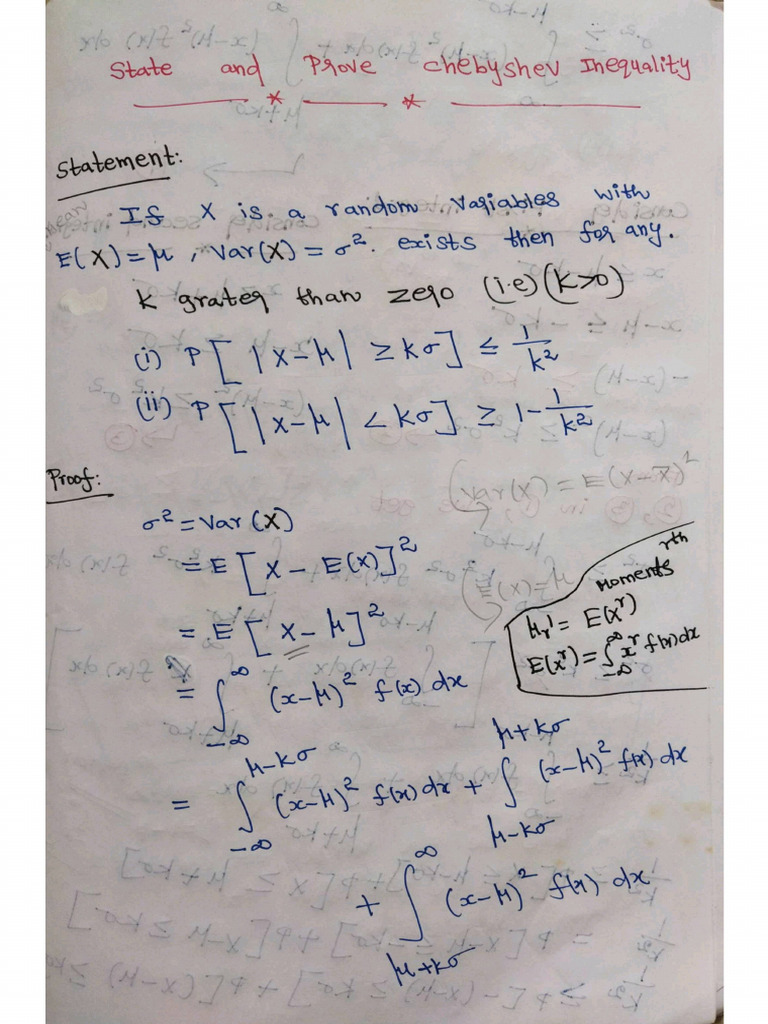 State and Prove Chebyshev Inequality
Statement:
If X is a random variables with
E(X) = μ, Var(X) = σ². exists then for any.
K grater than zero (i.e) (K>0)
(i) P[|X-μ| ≥ Kσ] ≤ 1/K²
(ii) P[|X-μ| < Kσ] ≥ 1 - 1/K²
Proof:
(Var(X) = E(X-X̄)²
σ² = Var(X)
= E[X - E(X)]²
(E(X) = μ
= E[X - μ]²
rth
Moments
μr' = E(X^r)
E(X^r) = ∫_{-∞}^{∞} x^r f(x) dx
= ∫_{-∞}^{∞} (x-μ)² f(x) dx
= ∫_{-∞}^{μ-Kσ} (x-μ)² f(x) dx + ∫_{μ-Kσ}^{μ+Kσ} (x-μ)² f(x) dx
+ ∫_{μ+Kσ}^{∞} (x-μ)² f(x) dx